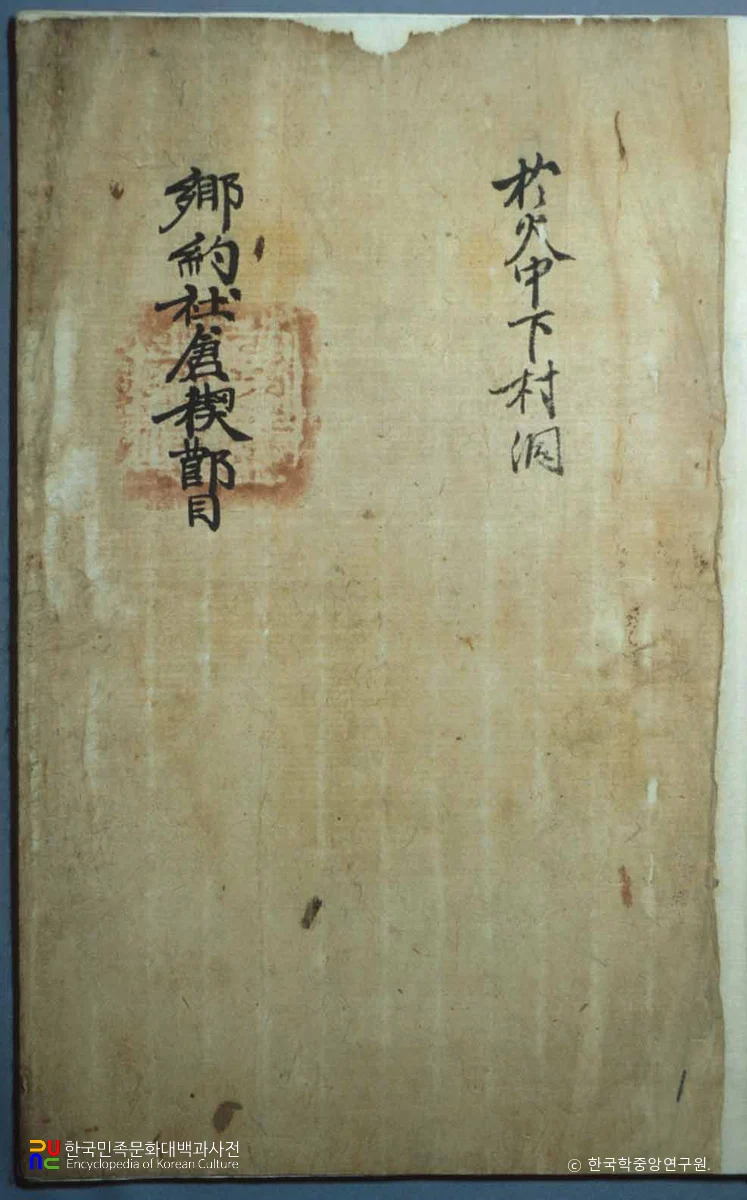 於火中下村洞
鄕約社倉稧節目
한국민족문화대백과사전
Encyclopedia of Korean Culture
© 한국학중앙연구원.